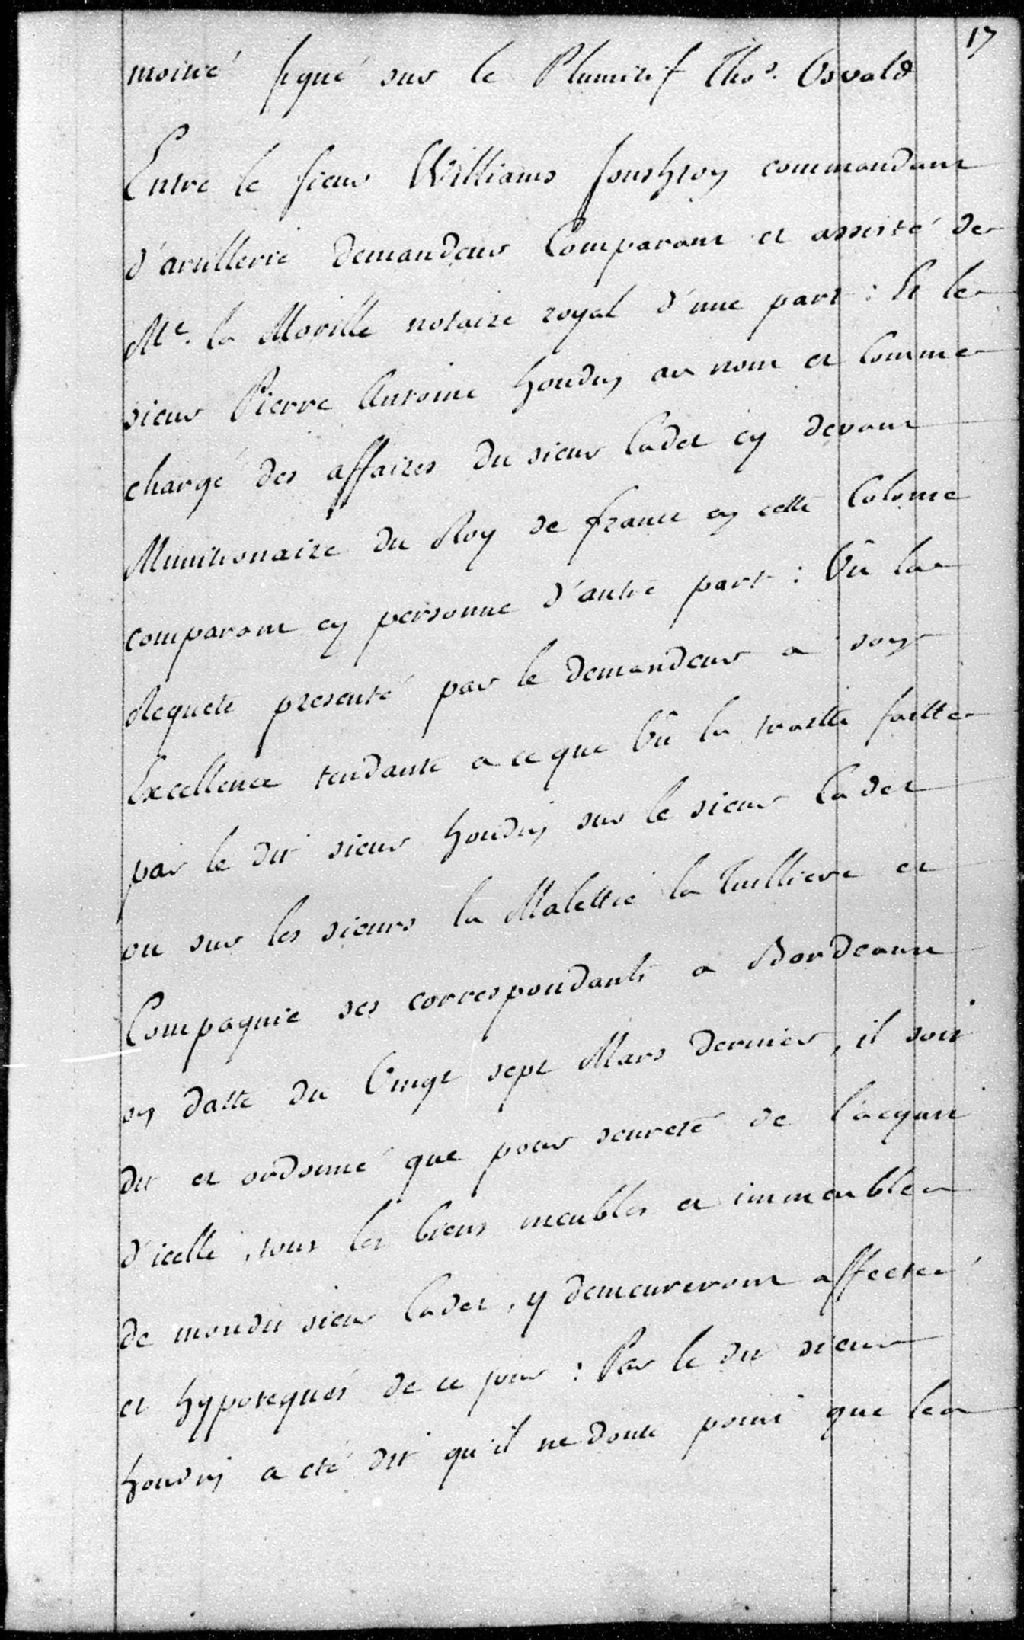 17
moitié signé sur le Plumitif Thos. Osvald
Entre le sieur Williams commandant
d'artillerie demandeur Comparant et assisté de
Me. la Moville notaire royal d'une part : Et le
sieur Pierre Antoine houdin au nom et Comme
chargé des affaires du sieur Cadet cy devant
Munitionaire du Roy de france en cette Colonie
comparant en personne d'autre part : Vû la
Requete presenté par le demandeur a son
Excellence tendante a ce que Vû la traitte faitte
par le dit sieur houdin sur le sieur Cadet
ou sur les sieurs la Malettie la Tuilliere et
Compagnie ses correspondants a Bordeaux
en datte du Vingt sept Mars dernier, il soit
dit et ordonné que pour seureté de l'acquit
d'icelle, tous les biens meubles et immeubles
de mondit sieur Cadet, y demeureront affectés
et hypotequés de ce jour : Par le dit sieur
houdin a été dit qu'il ne doute point que les